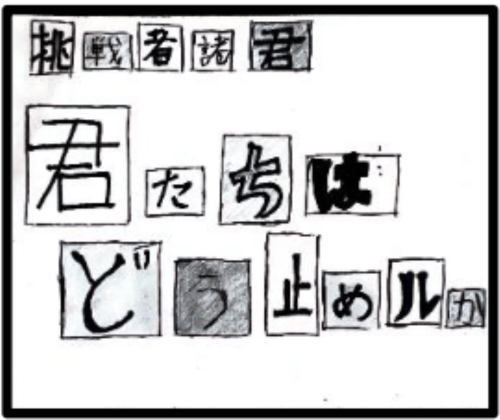 挑戦者諸君
君たちは
どう止めルか